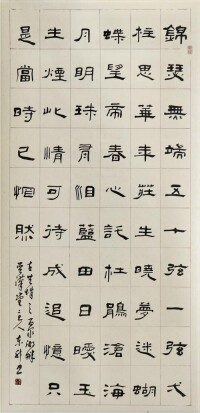 錦瑟無端五十弦一弦弌
柱思華年莊生曉夢迷蝴
蝶望帝春心託杜鵑滄海
月明珠有泪藍田日暖玉
生煙此情可待成追憶只
是當時已惘然